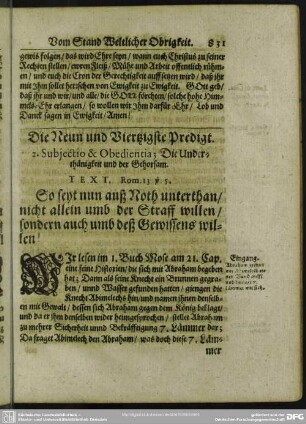 Vom Stand Weltlicher Obrigkeit. 831
gewis folgen/ das wird Ehr seyn/ wann euch Christus zu seiner
Rechten stellen/ ewren Fleiß/ Mühe und Arbeit offentlich rühm-
en/ und euch die Cron der Gerechtigkeit auffsetzen wird/ daß ihr
mit Ihm sollet herrschen von Ewigkeit zu Ewigkeit. GOtt geb/
daß ihr und wir/ und alle/ die GOtt förchten/ solche hohe Him-
mels-Ehr erlangen/ so wollen wir Ihm darfür Ehr/ Lob und
Danck sagen in Ewigkeit/ Amen!
Die Neun und Viertzigste Predigt.
2. Subjectio & Obedientia: Die Under-
thänigkeit und der Gehorsam.
TEXT. Rom. 13 v. 5.
So seyt nun auß Noth unterthan/
nicht allein umb der Straff willen/
sondern auch umb deß Gewissens wil-
len!
WIr lesen im 1. Buch Mose am 21. Cap.
eine feine Historien/ die sich mit Abraham begeben
hat; Dann als seine Knecht ein Brunnen gegra-
ben/ unnd Wasser gefunden hatten/ giengen die
Knecht Abimelechs hin/ und namen ihnen denselb-
en mit Gewalt/ dessen sich Abraham gegen dem König beklagt/
und da er ihm denselben wider heimgesprochen/ stellet Abraham
zu mehrer Sicherheit unnd Bekräfftigung 7. Lämmer dar:
Da fraget Abimelech den Abraham/ was doch diese 7. Läm-
mer
Eingang.
Abraham